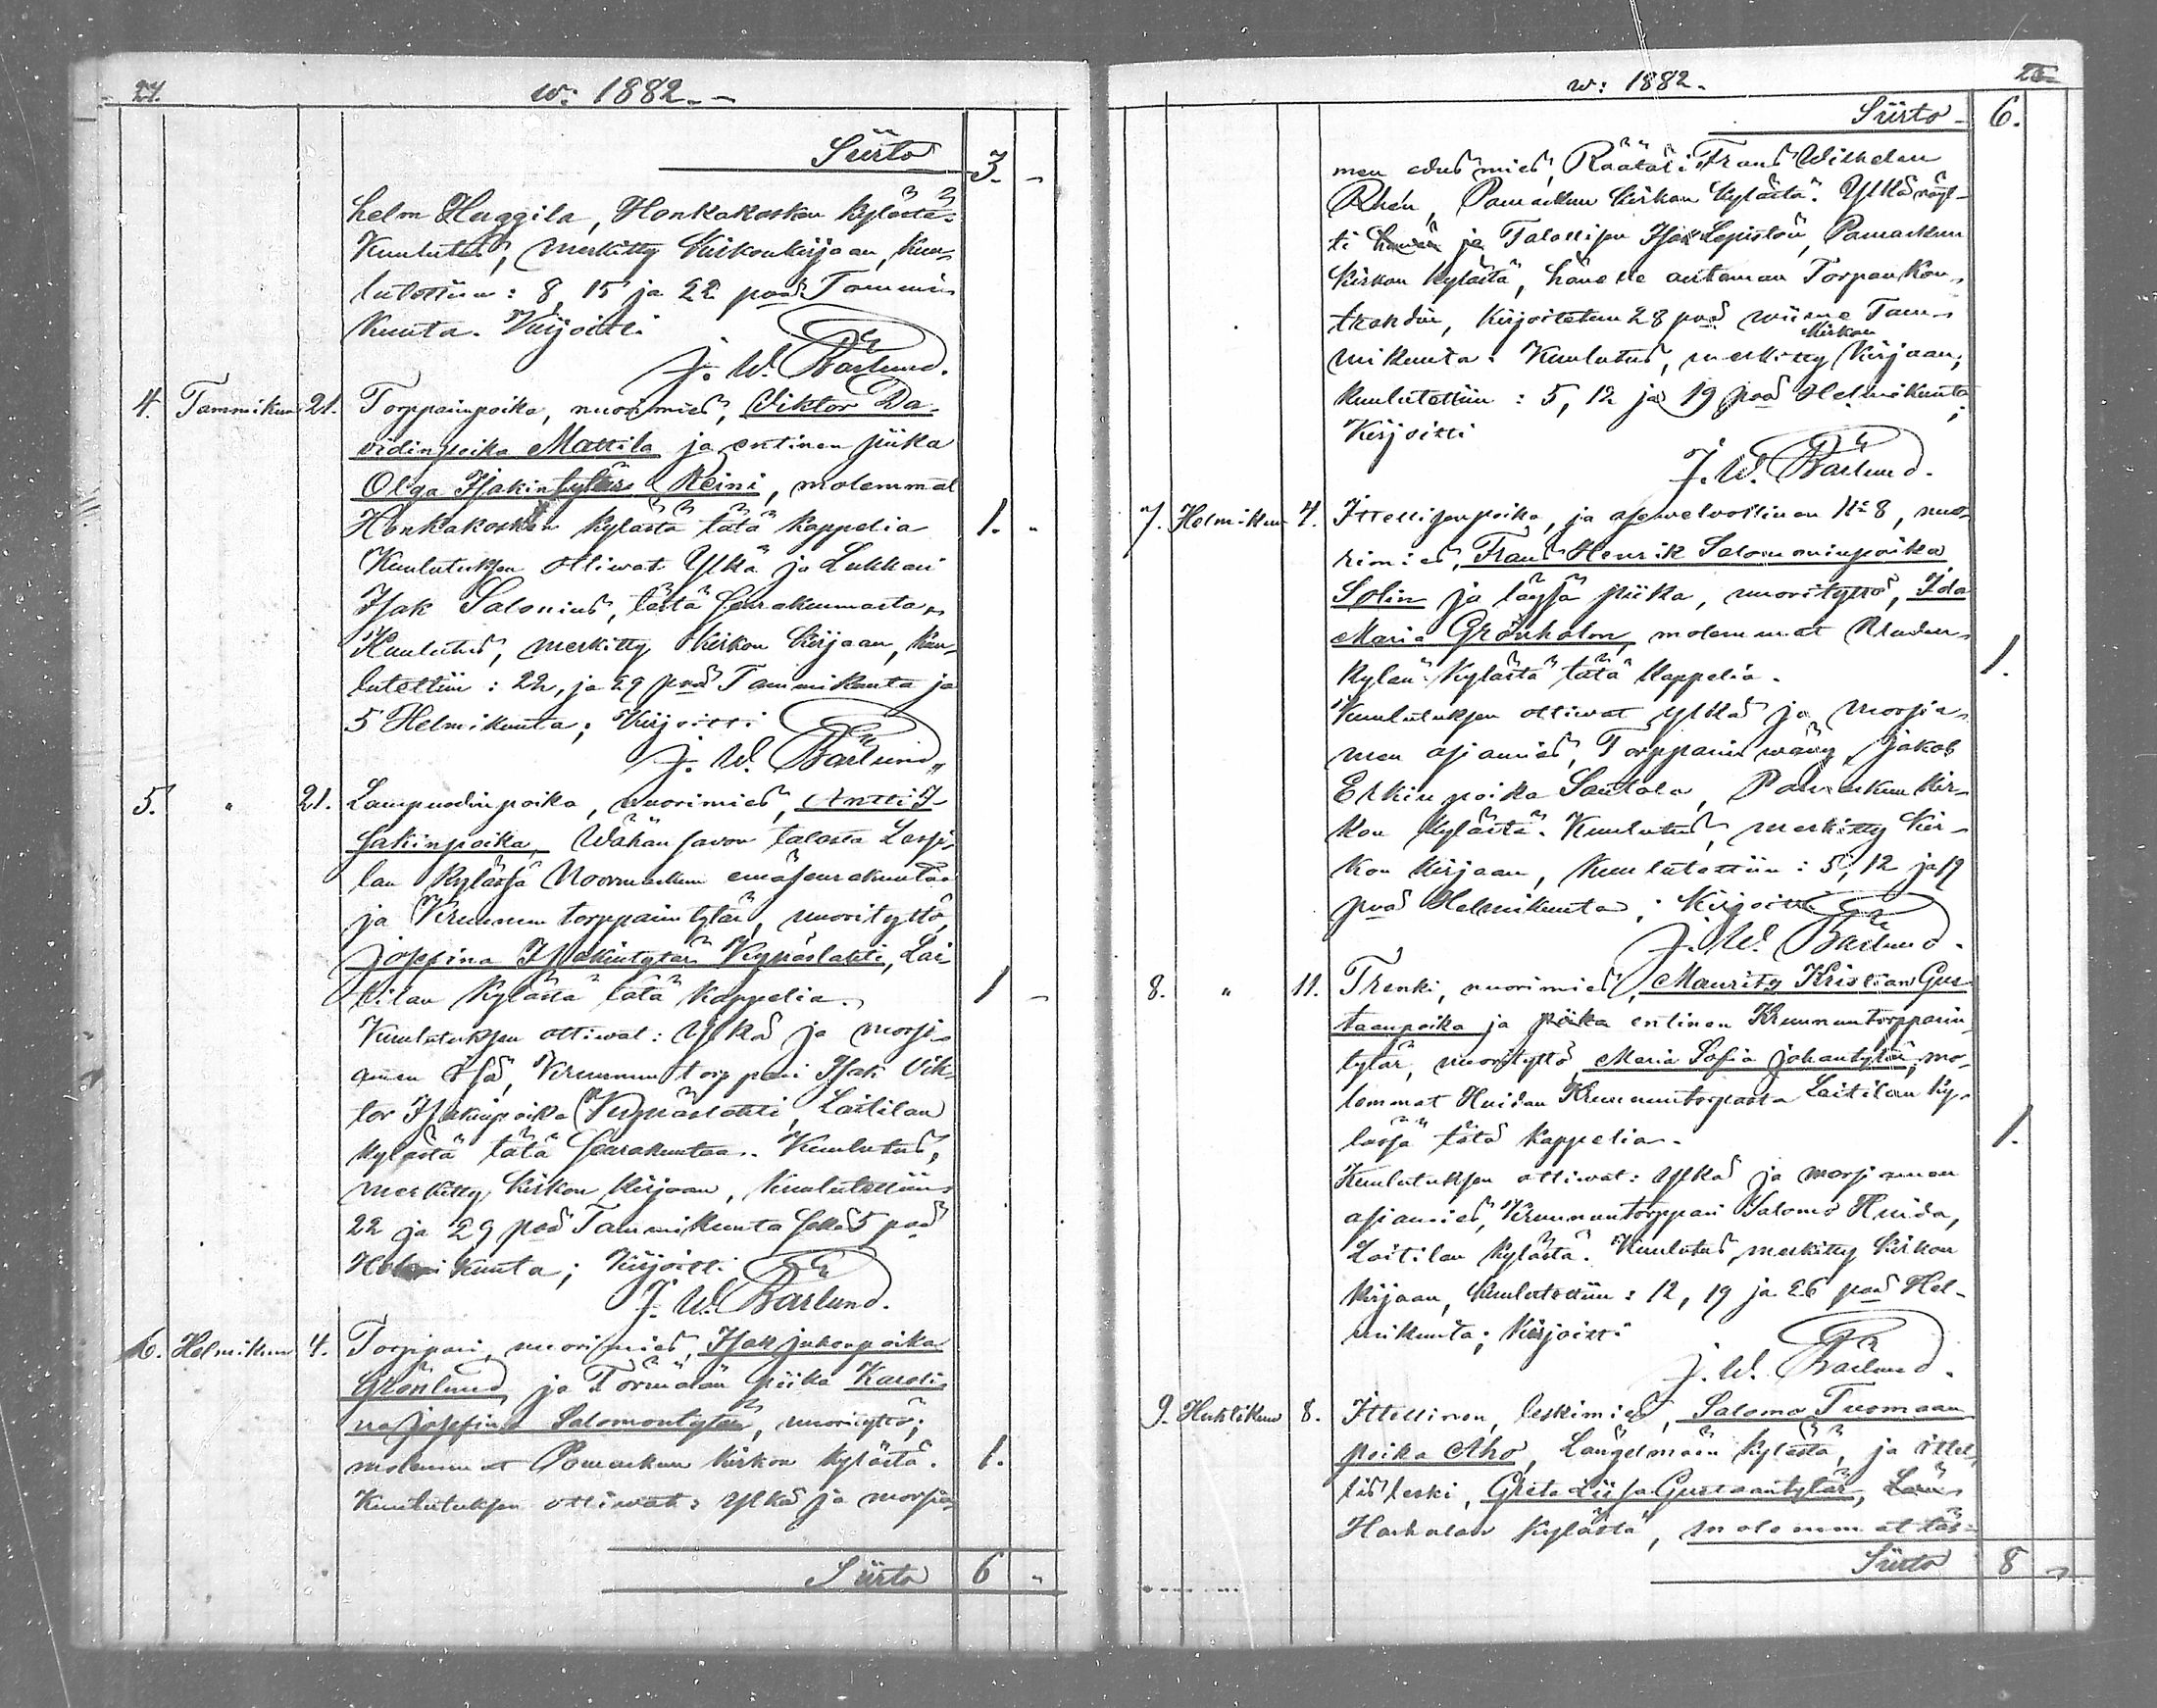 24.
w: 1882.-
Siirto 3. -
helm Huggila, Honkakosken kylästä.
Kuulutus, merkitty Kirkonkirjaan, kuu-
lutettiin: 8, 15 ja 22 pvä Tammi-
kuuta. Kirjoitti
J. W. Bärlund.
4. Tammikuu 21. Torpparinpoika, nuorimies, Viktor Da-
vidinpoika Mattila ja entinen piika
Olga Isakintytär Reini, molemmat
Honkakosken kylästä tätä kappelia 1. -
Kuulutuksen ottiwat Ylkä ja Lukkari
Isak Salonius, tästä seurakunnasta.
Kuulutus, merkitty Kirkon kirjaan, kuu-
lutettiin: 22, ja 29 pvä Tammikuuta ja
5 Helmikuuta; Kirjoitti
J. W. Bärlund.
5. " 21. Lampuodinpoika, nuorimies, Antti I-
sakinpoika, Wähänsavon talosta Lassi-
lan kylässä Noormarkun emäseurakuntaa
ja Kruunun torpparintytär, nuorityttö,
Josefina Isakintytär Kynäslahti, Lai-
tilan kylästä tätä kappelia. 1 -
Kuulutuksen ottiwat: Ylkä ja morsi-
amen isä, Kruunun torppari Isak Vik-
tor Isakinpoika Kynäslahti, Laitilan
kylästä tätä seurakuntaa. Kuulutus,
merkitty Kirkon kirjaan, kuulutettiin
22 ja 29 pvä Tammikuuta sekä 5 pvä
Helmikuuta; Kirjoitti
J. W. Bärlund.
6. Helmikuu 4. Torppari, nuorimies, Isak Jakonpoika
Grönlund ja Törmälän piika Karoli-
na Josefina Salomontytär, nuorityttö;
molemmat Pomarkun kirkon kylästä. 1.
Kuulutuksen ottiwat: Ylkä ja morsia-
Siirto 6 "
w: 1882.
25
Siirto - 6.
men edusmies, Räätäli Frans Wilhelm
Rhén, Pomarkun kirkon kylästä. Ylkä näyt-
ti ja Talollisen Isak Lepistön, Pomarkun
kirkon kylästä, hänelle antaman Torpan kon-
trahdin, kirjoitetun 28 pvä wiime Tam-
mikuuta. Kuulutus, merkitty Kirkon kirjaan,
kuulutettiin: 5, 12 ja 19 pvä Helmikuuta;
Kirjoitti
J. W. Bärlund.
7. Helmikuu 4. Ittellisenpoika, ja asewelvollinen No 8, nuo-
rimies, Frans Henrik Salomoninpoika
Solin ja läysä piika, nuorityttö, Ida
Maria Grönholm, molemmat Uuden-
kylän kylästä tätä kappelia. 1.
Kuulutuksen ottiwat Ylkä ja morsia-
men asiamies, Torpparin wäwy Jakob
Erkinpoika Santala, Pomarkun kir-
kon kylästä. Kuulutus, merkitty Kir-
kon kirjaan, kuulutettiin: 5, 12 ja 19
pvä Helmikuuta; Kirjoitti
J. W. Bärlund.
8. " 11. Trenki, nuorimies, Mauritz Kristian Gus-
taanpoika ja piika entinen Kruununtorpparin-
tytär, nuorityttö, Maria Sofia Johantytär, mo-
lemmat Huidan Kruununtorpasta Laitilan ky-
lässä tätä kappelia. 1.
Kuulutuksen ottiwat: Ylkä ja morsiamen
asiamies, Kruununtorppari Salomo Huida,
Laitilan kylästä. Kuulutus, merkitty Kirkon
kirjaan, kuulutettiin: 12, 19 ja 26 pvä Hel-
mikuuta; Kirjoitti
J. W. Bärlund.
9. Huhtikuu 8. Ittellinen, leskimies, Salomo Tuomaan
poika Aho, Längelmäen kylästä, ja ittel-
lis leski, Greta Liisa Gustaantytär,
Harhalan kylästä, molemmat täs-
Siirto 8 -